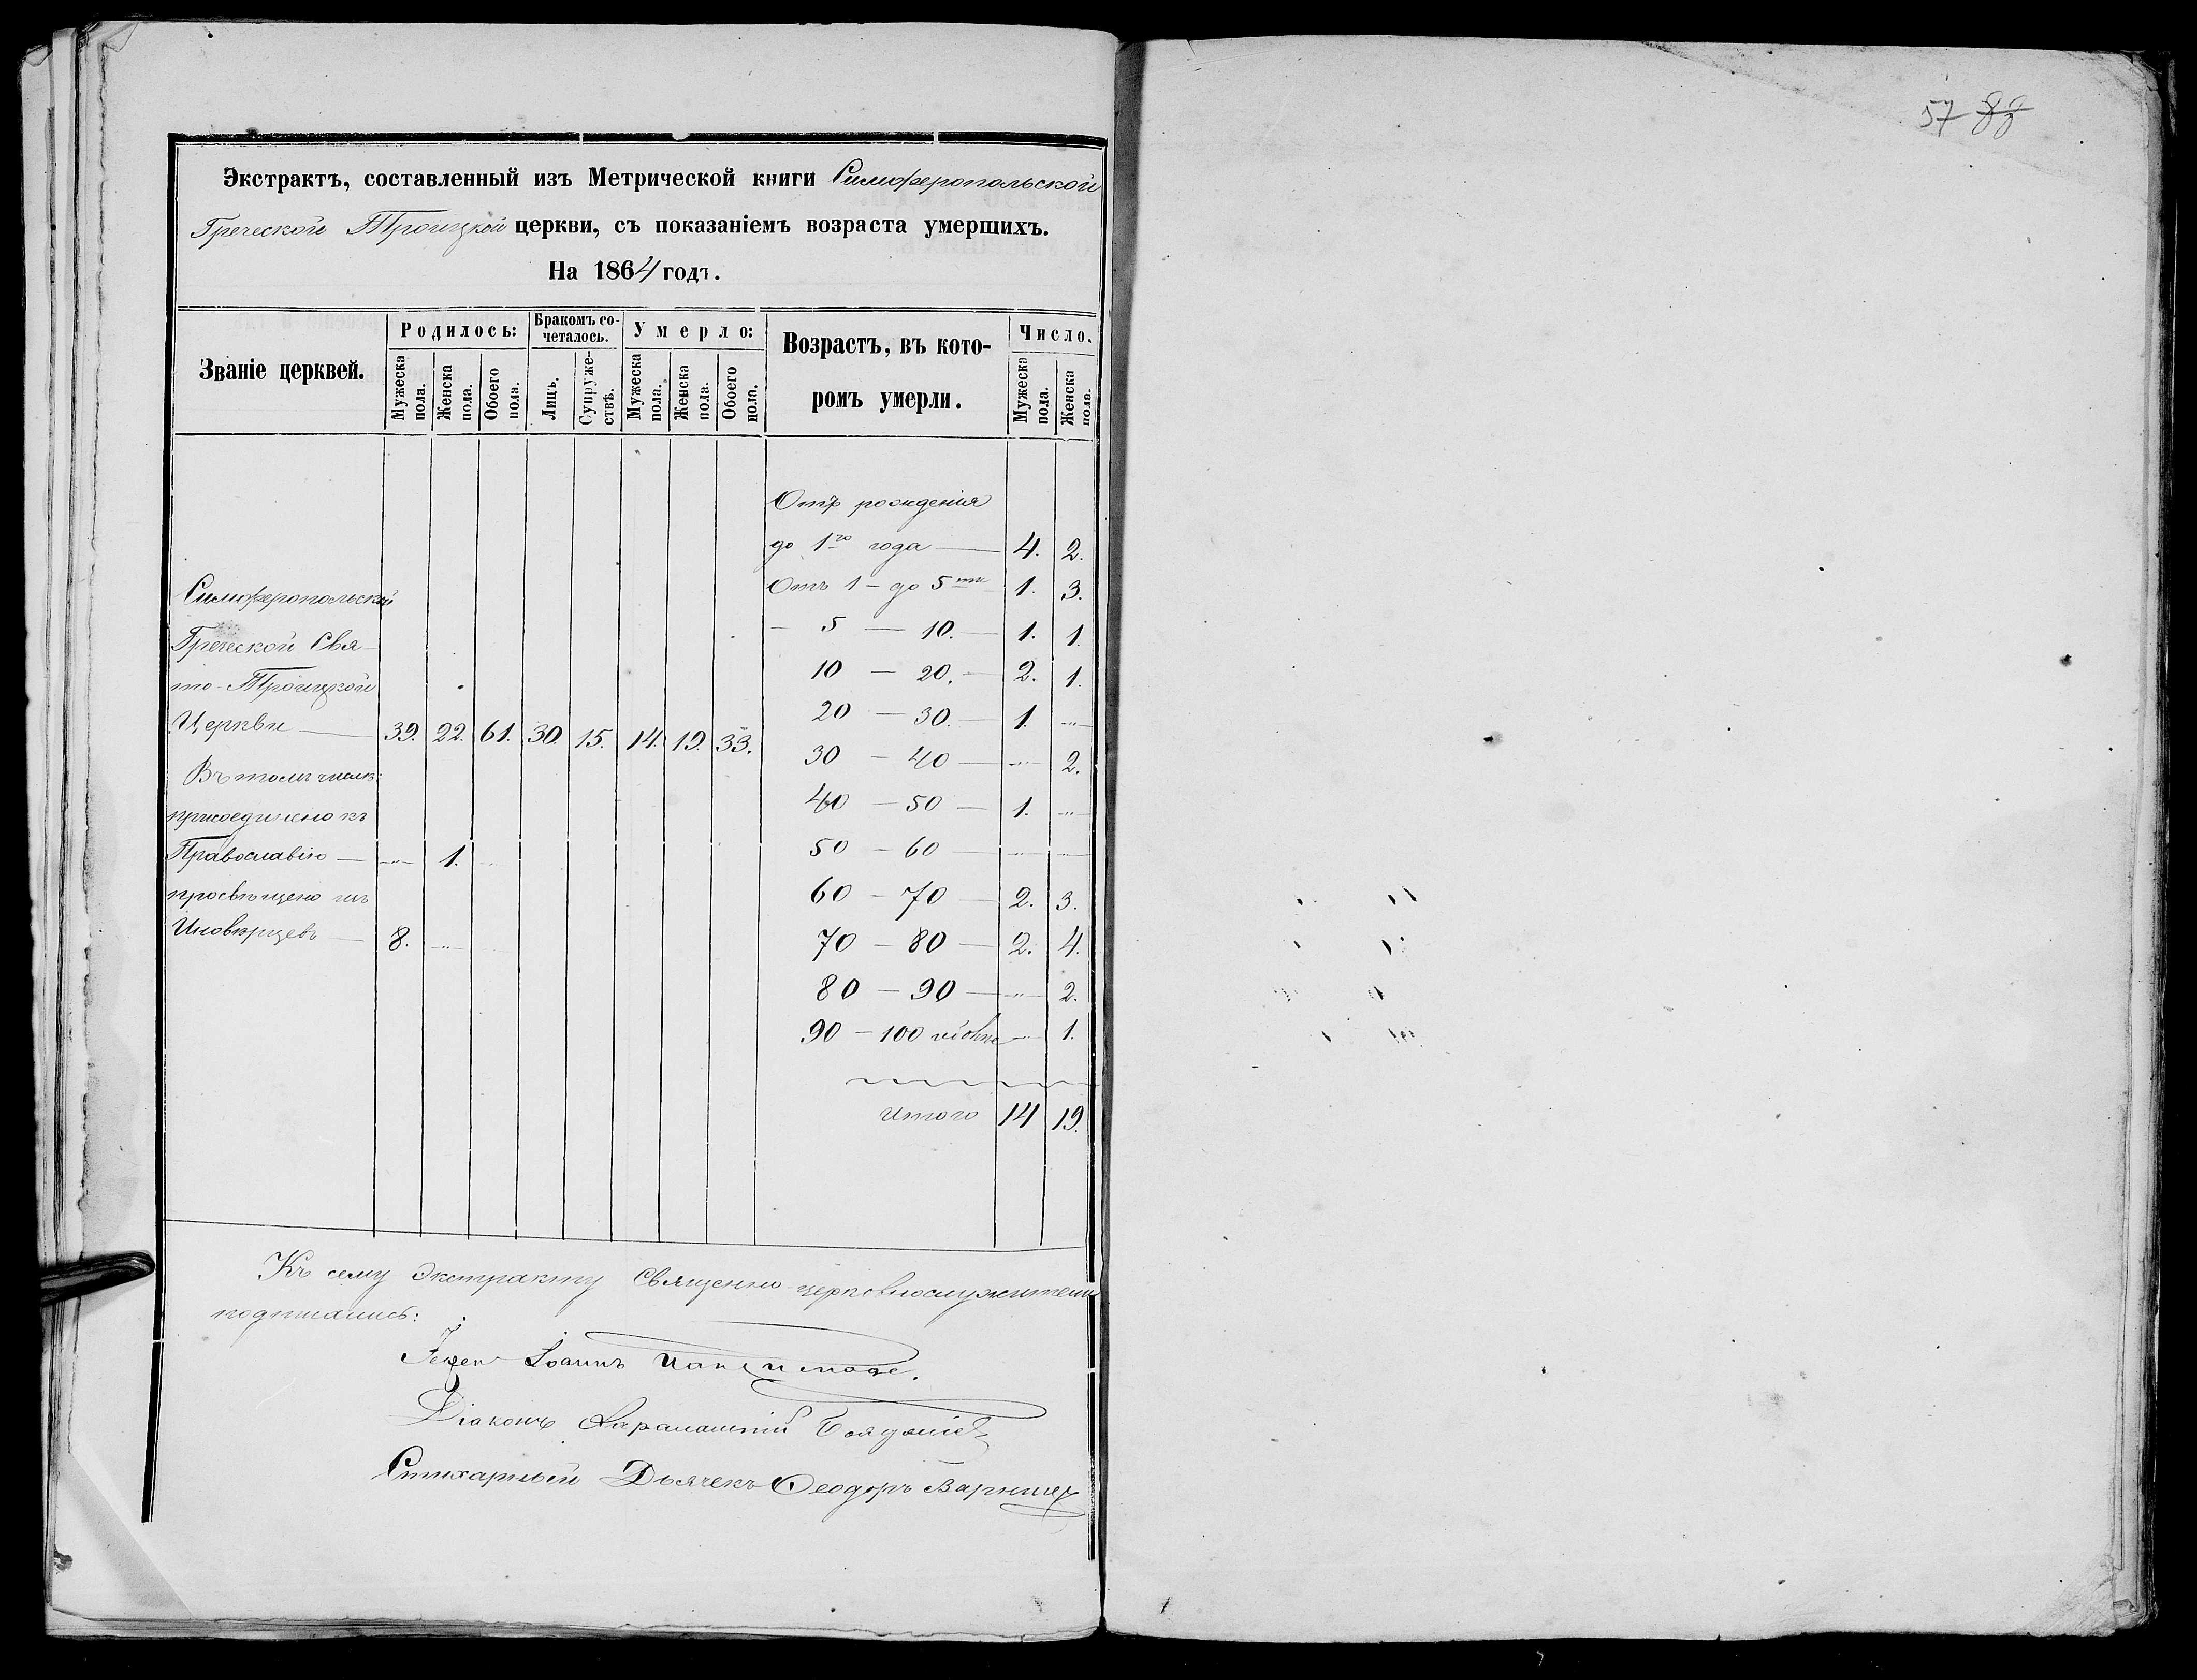 57 88
Экстрактъ, составленный изъ Метрической книги Симферопольской
Греческой Троицкой церкви, съ показаніемъ возраста умершихъ.
На 1864 годъ.
Званіе церквей.
Родилось:
Бракомъ сочеталось.
Умерло:
Возрастъ, въ которомъ умерли.
Число.
Мужеска пола.
Женска пола.
Обоего пола.
Лицъ.
Супружествъ.
Мужеска пола.
Женска пола.
Обоего пола.
Мужеска пола.
Женска пола.
Отъ рожденія
до 1го года — 4. 2.
Отъ 1 — до 5ти 1. 3.
— 5 — 10. — 1. 1.
10 — 20. — 2. 1.
20 — 30. — 1. —„—
30 — 40 — —„— 2.
40 — 50 — 1. —„—
50 — 60 — —„— —„—
60 — 70 — 2. 3.
70 — 80 — 2. 4.
80 — 90 — —„— 2.
90 — 100 —„— 1.
Итого 14 19.
Симферопольской
Греческой Свя-
то-Троицкой
Церкви — 39. 22. 61. 30. 15. 14. 19. 33.
Въ томъ числѣ:
присоединено къ
Православію — —„— 1.
просвѣщено изъ
Иновѣрцевъ — 8. —„—
Къ сему Экстракту Священно-церковнослужители
подписались:
Іерей Іоаннъ
Діаконъ Харалампій
Стихарный Дьячекъ Ѳеодоръ